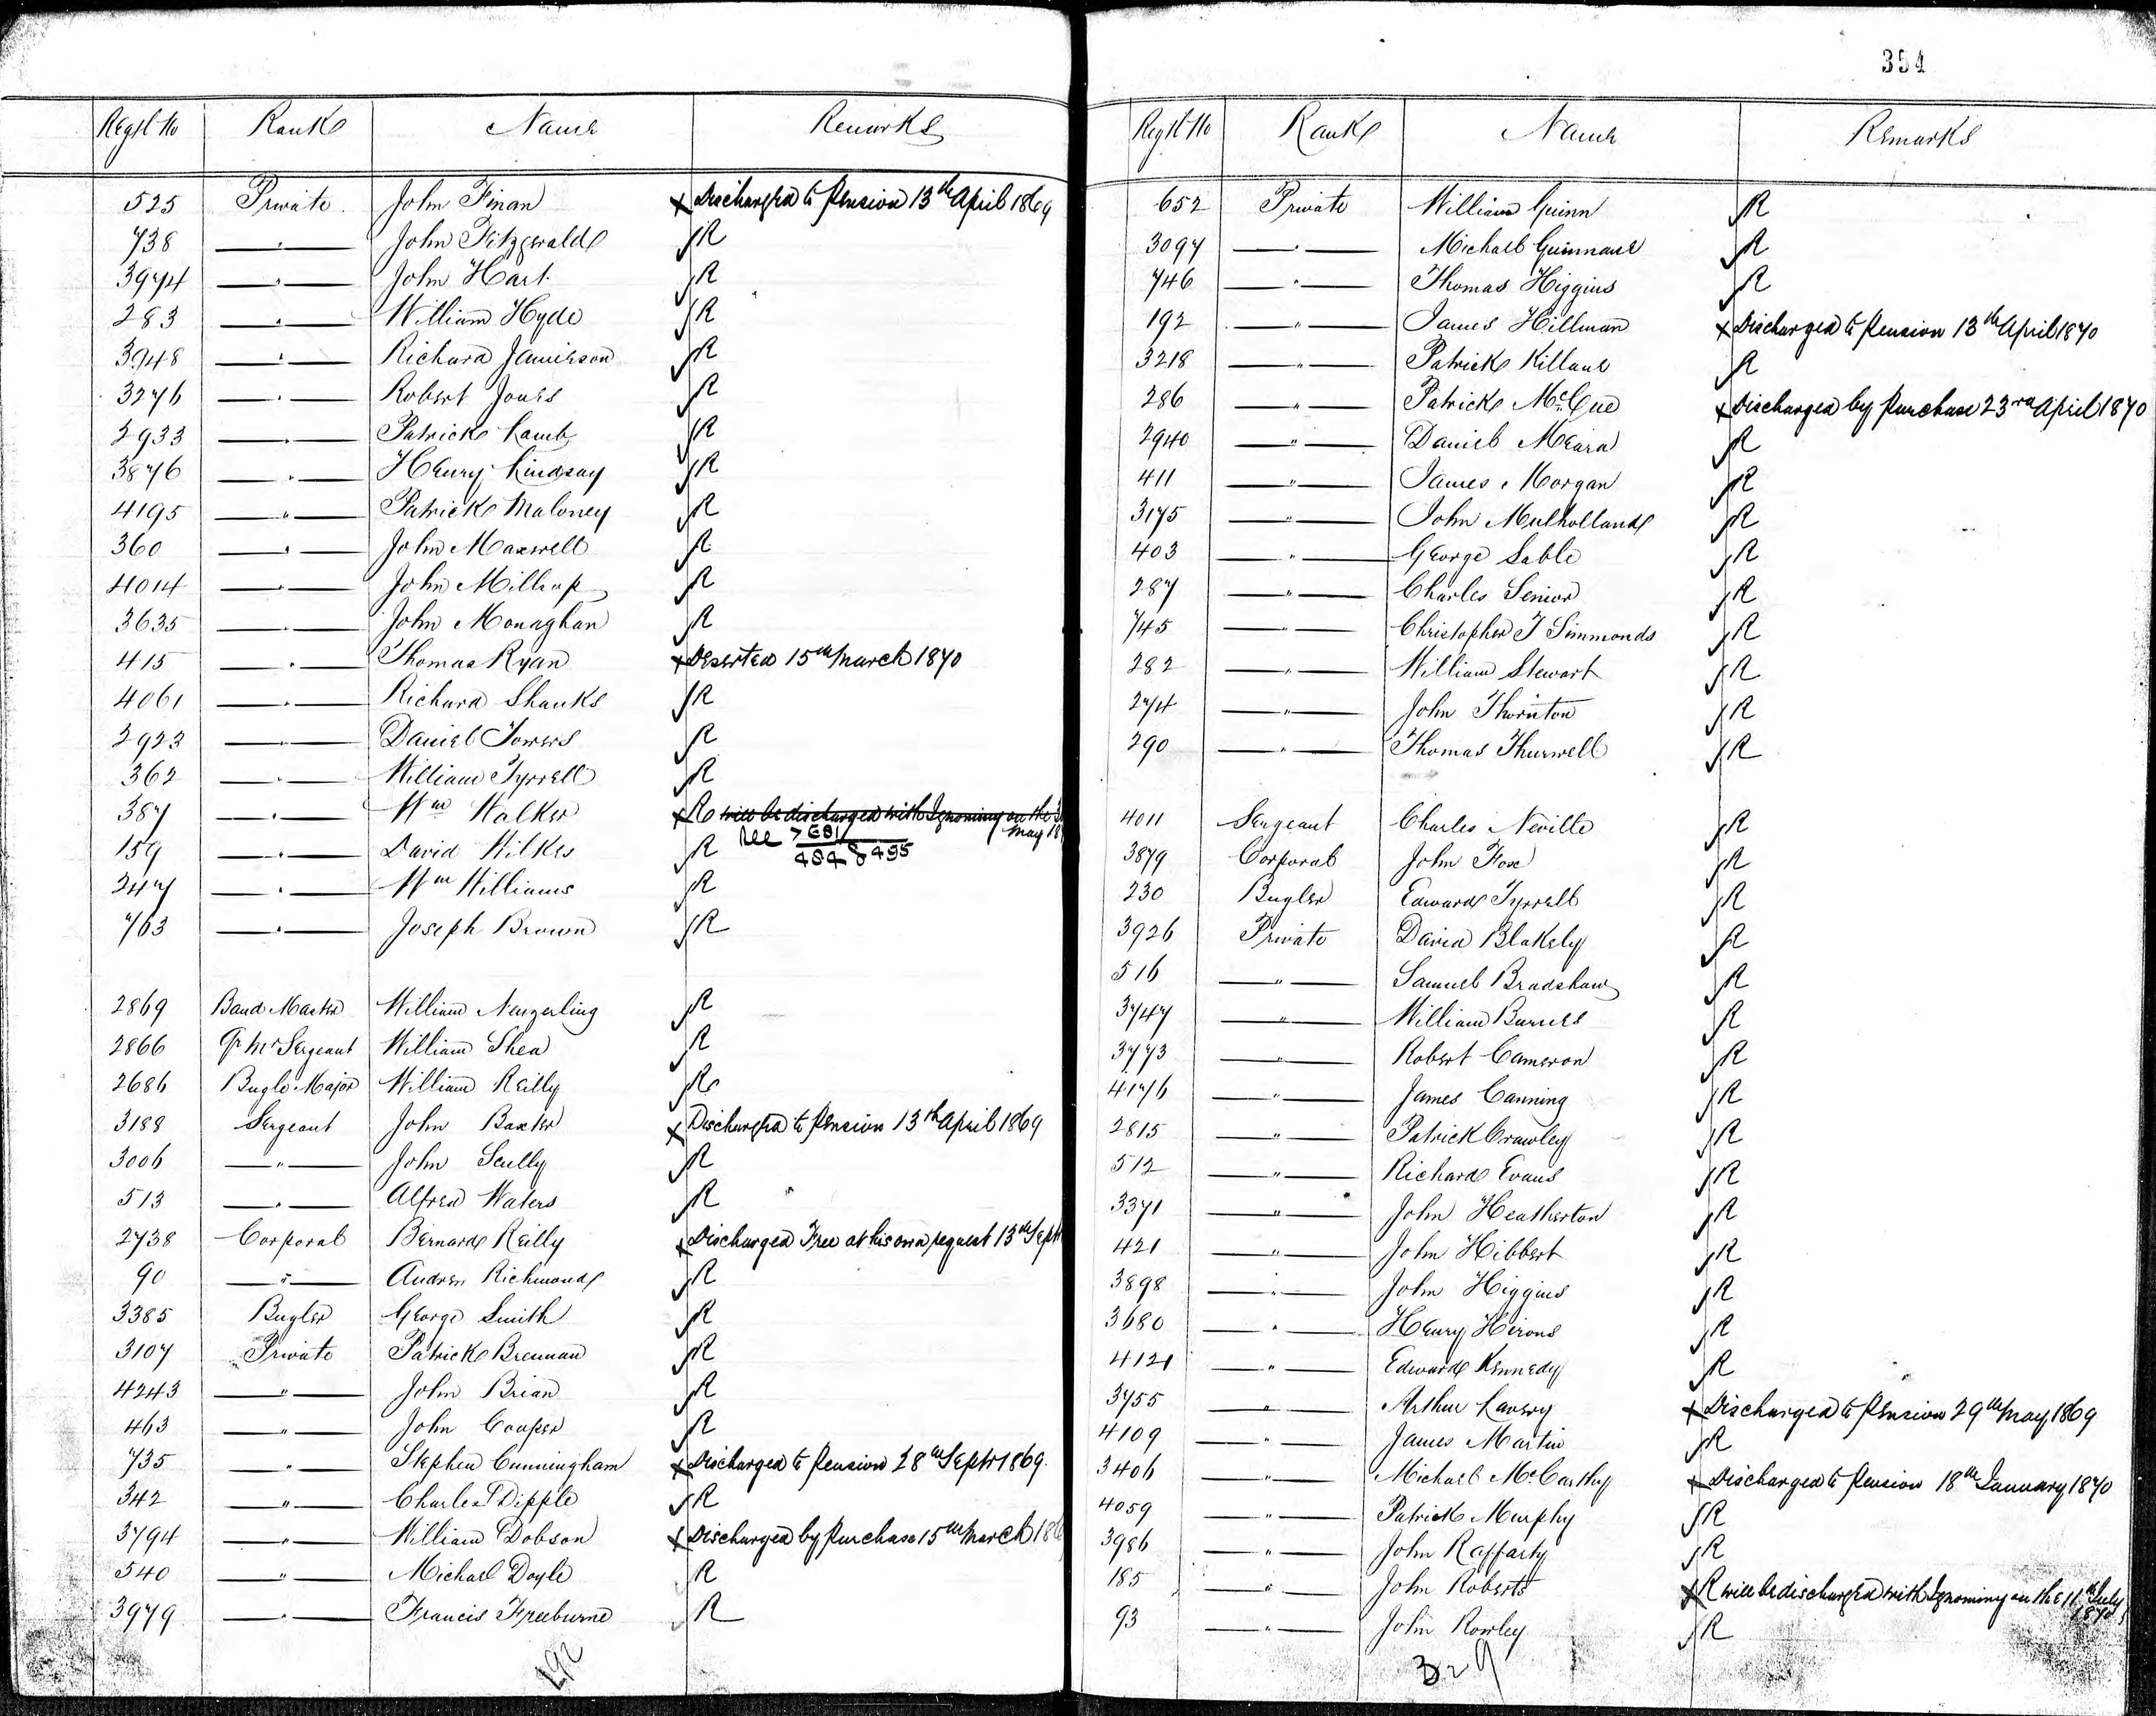 Regtl No Rank Name Remarks
525 Private John Finan x Discharged to Pension 13th April 1869
738 — " — John Fitzgerald √R
3974 — " — John Hart √R
283 — " — William Hyde √R
3948 — " — Richard Jamieson √R
3276 — " — Robert Jones √R
2933 — " — Patrick Lamb √R
3876 — " — Henry Lindsay √R
4195 — " — Patrick Maloney √R
360 — " — John Maxwell √R
4014 — " — John Millsop √R
3635 — " — John Monaghan √R
415 — " — Thomas Ryan x Deserted 15th March 1870
4061 — " — Richard Shanks √R
2923 — " — Daniel Towers √R
362 — " — William Tyrrell √R
387 — " — Wm Walker x R will be discharged with Ignominy on the
May 18
159 — " — David Wilkes √R See > 681/484 & 495
247 — " — Wm Williams √R
763 — " — Joseph Brown √R
2869 Band Master William Neuzerling √R
2866 Qr Mr Sergeant William Shea √R
2686 Bugle Major William Reilly √R
3188 Sergeant John Baxter x Discharged to Pension 13th April 1869
3006 — " — John Scully √R
513 — " — Alfred Waters √R
2738 Corporal Bernard Reilly x Discharged Free at his own request 13th Sept
90 — " — Andrew Richmond √R
3385 Bugler George Smith √R
3107 Private Patrick Brennan √R
4243 — " — John Brian √R
463 — " — John Cooper √R
735 — " — Stephen Cunningham x Discharged to Pension 28th Septr 1869.
342 — " — Charles Dipple √R
3794 — " — William Dobson x Discharged by Purchase 15th March 186
540 — " — Michael Doyle √R
3979 — " — Francis Freeburne √R
292
354
Regtl No Rank Name Remarks
652 Private William Guinn √R
3097 — " — Michael Guinnane √R
746 — " — Thomas Higgins √R
192 — " — James Hillman x Discharged to Pension 13th April 1870
3218 — " — Patrick Killane √R
286 — " — Patrick McCue x Discharged by Purchase 23rd April 1870
2940 — " — Daniel Meara √R
411 — " — James Morgan √R
3175 — " — John Mulholland √R
403 — " — George Sable √R
287 — " — Charles Senior √R
745 — " — Christopher T Simmonds √R
282 — " — William Stewart √R
274 — " — John Thornton √R
290 — " — Thomas Thurwell √R
4011 Sergeant Charles Neville √R
3879 Corporal John Fox √R
230 Bugler Edward Tyrrell √R
3926 Private David Blakely √R
516 — " — Samuel Bradshaw √R
3747 — " — William Burnes √R
3773 — " — Robert Cameron √R
4176 — " — James Canning √R
2815 — " — Patrick Crawley √R
512 — " — Richard Evans √R
3371 — " — John Heatherton √R
421 — " — John Hibbert √R
3898 — " — John Higgins √R
3680 — " — Henry Hirons √R
4121 — " — Edward Kennedy √R
3755 — " — Arthur Lavery x Discharged to Pension 29th May 1869
4109 — " — James Martin √R
3406 — " — Michael McCarthy x Discharged to Pension 18th January 1870
4059 — " — Patrick Murphy √R
3986 — " — John Raffarty √R
185 — " — John Roberts x R will be discharged with Ignominy on the 11th July
1870
93 — " — John Rowley √R
329